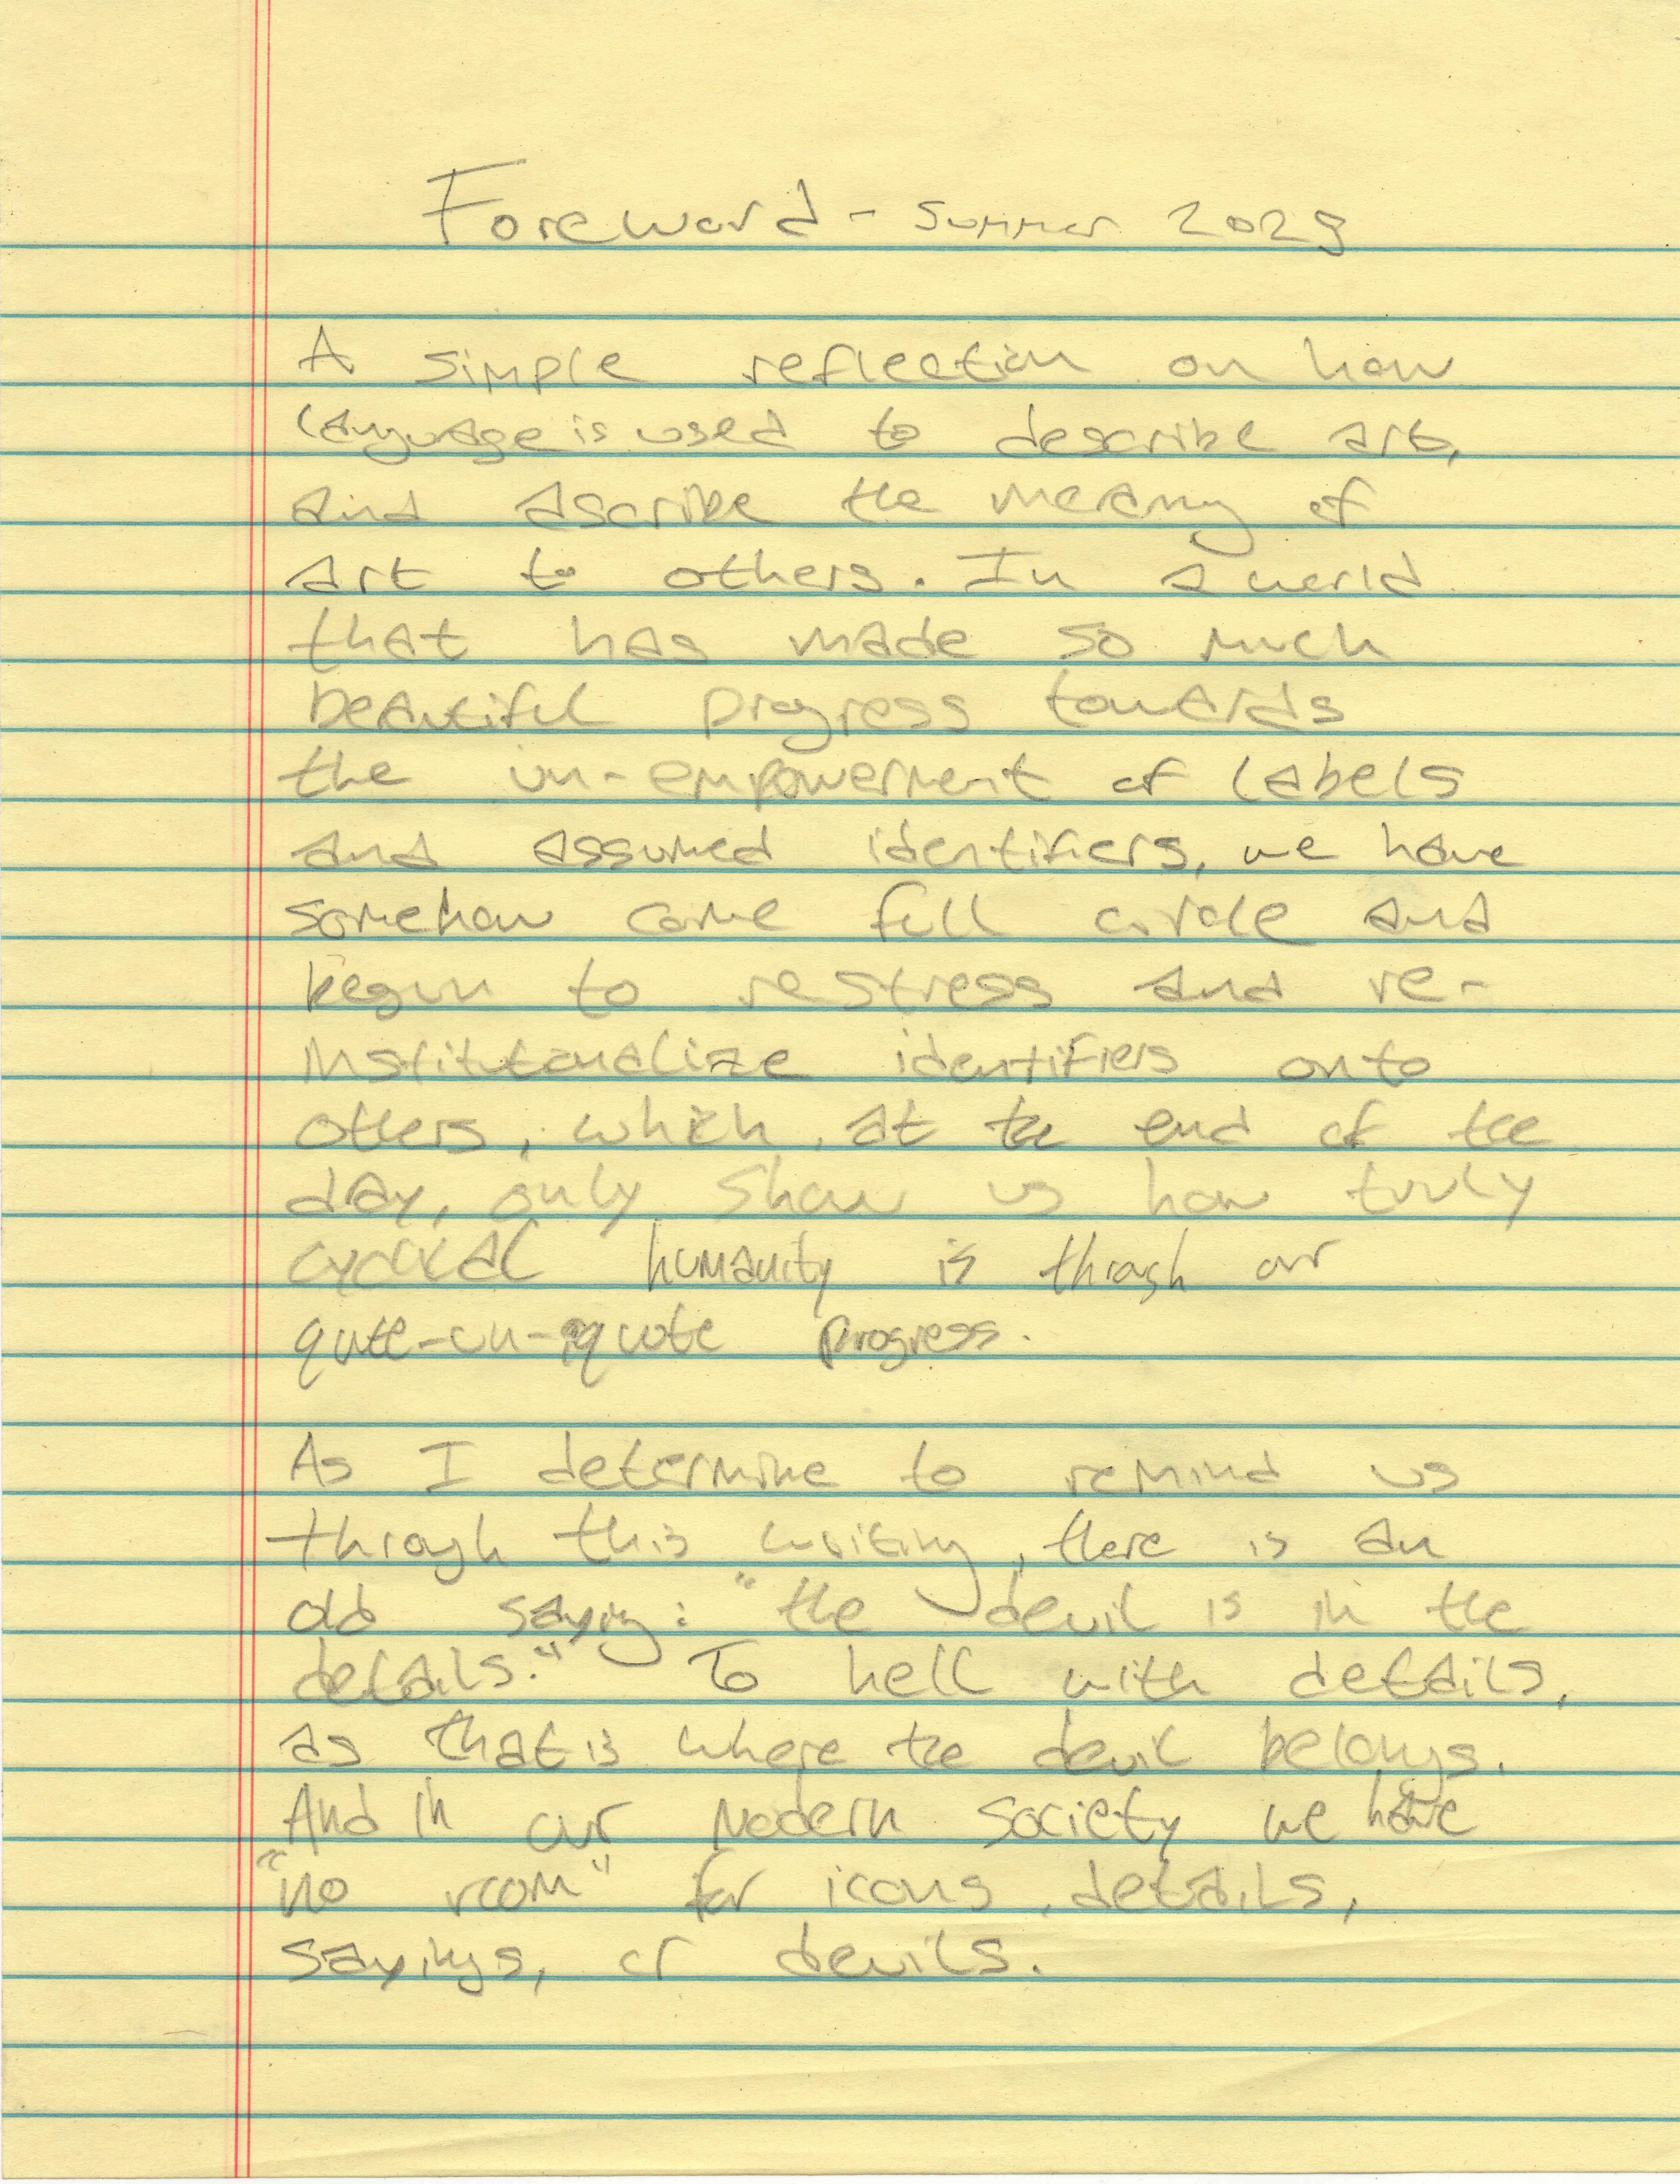 Foreword - Summer 2023
A simple reflection on how
language is used to describe art,
and ascribe the meaning of
art to others. In a world
that has made so much
beautiful progress towards
the un-empowerment of labels
and assumed identifiers, we have
somehow come full circle and
begun to restress and re-
institutionalize identifiers onto
others, which, at the end of the
day, only show us how truly
cyclical humanity is through our
quote-un-quote progress.
As I determine to remind us
through this writing, there is an
old saying: "the devil is in the
details." To hell with details,
as that is where the devil belongs.
And in our modern society we have
"no room" for icons, details,
sayings, or devils.